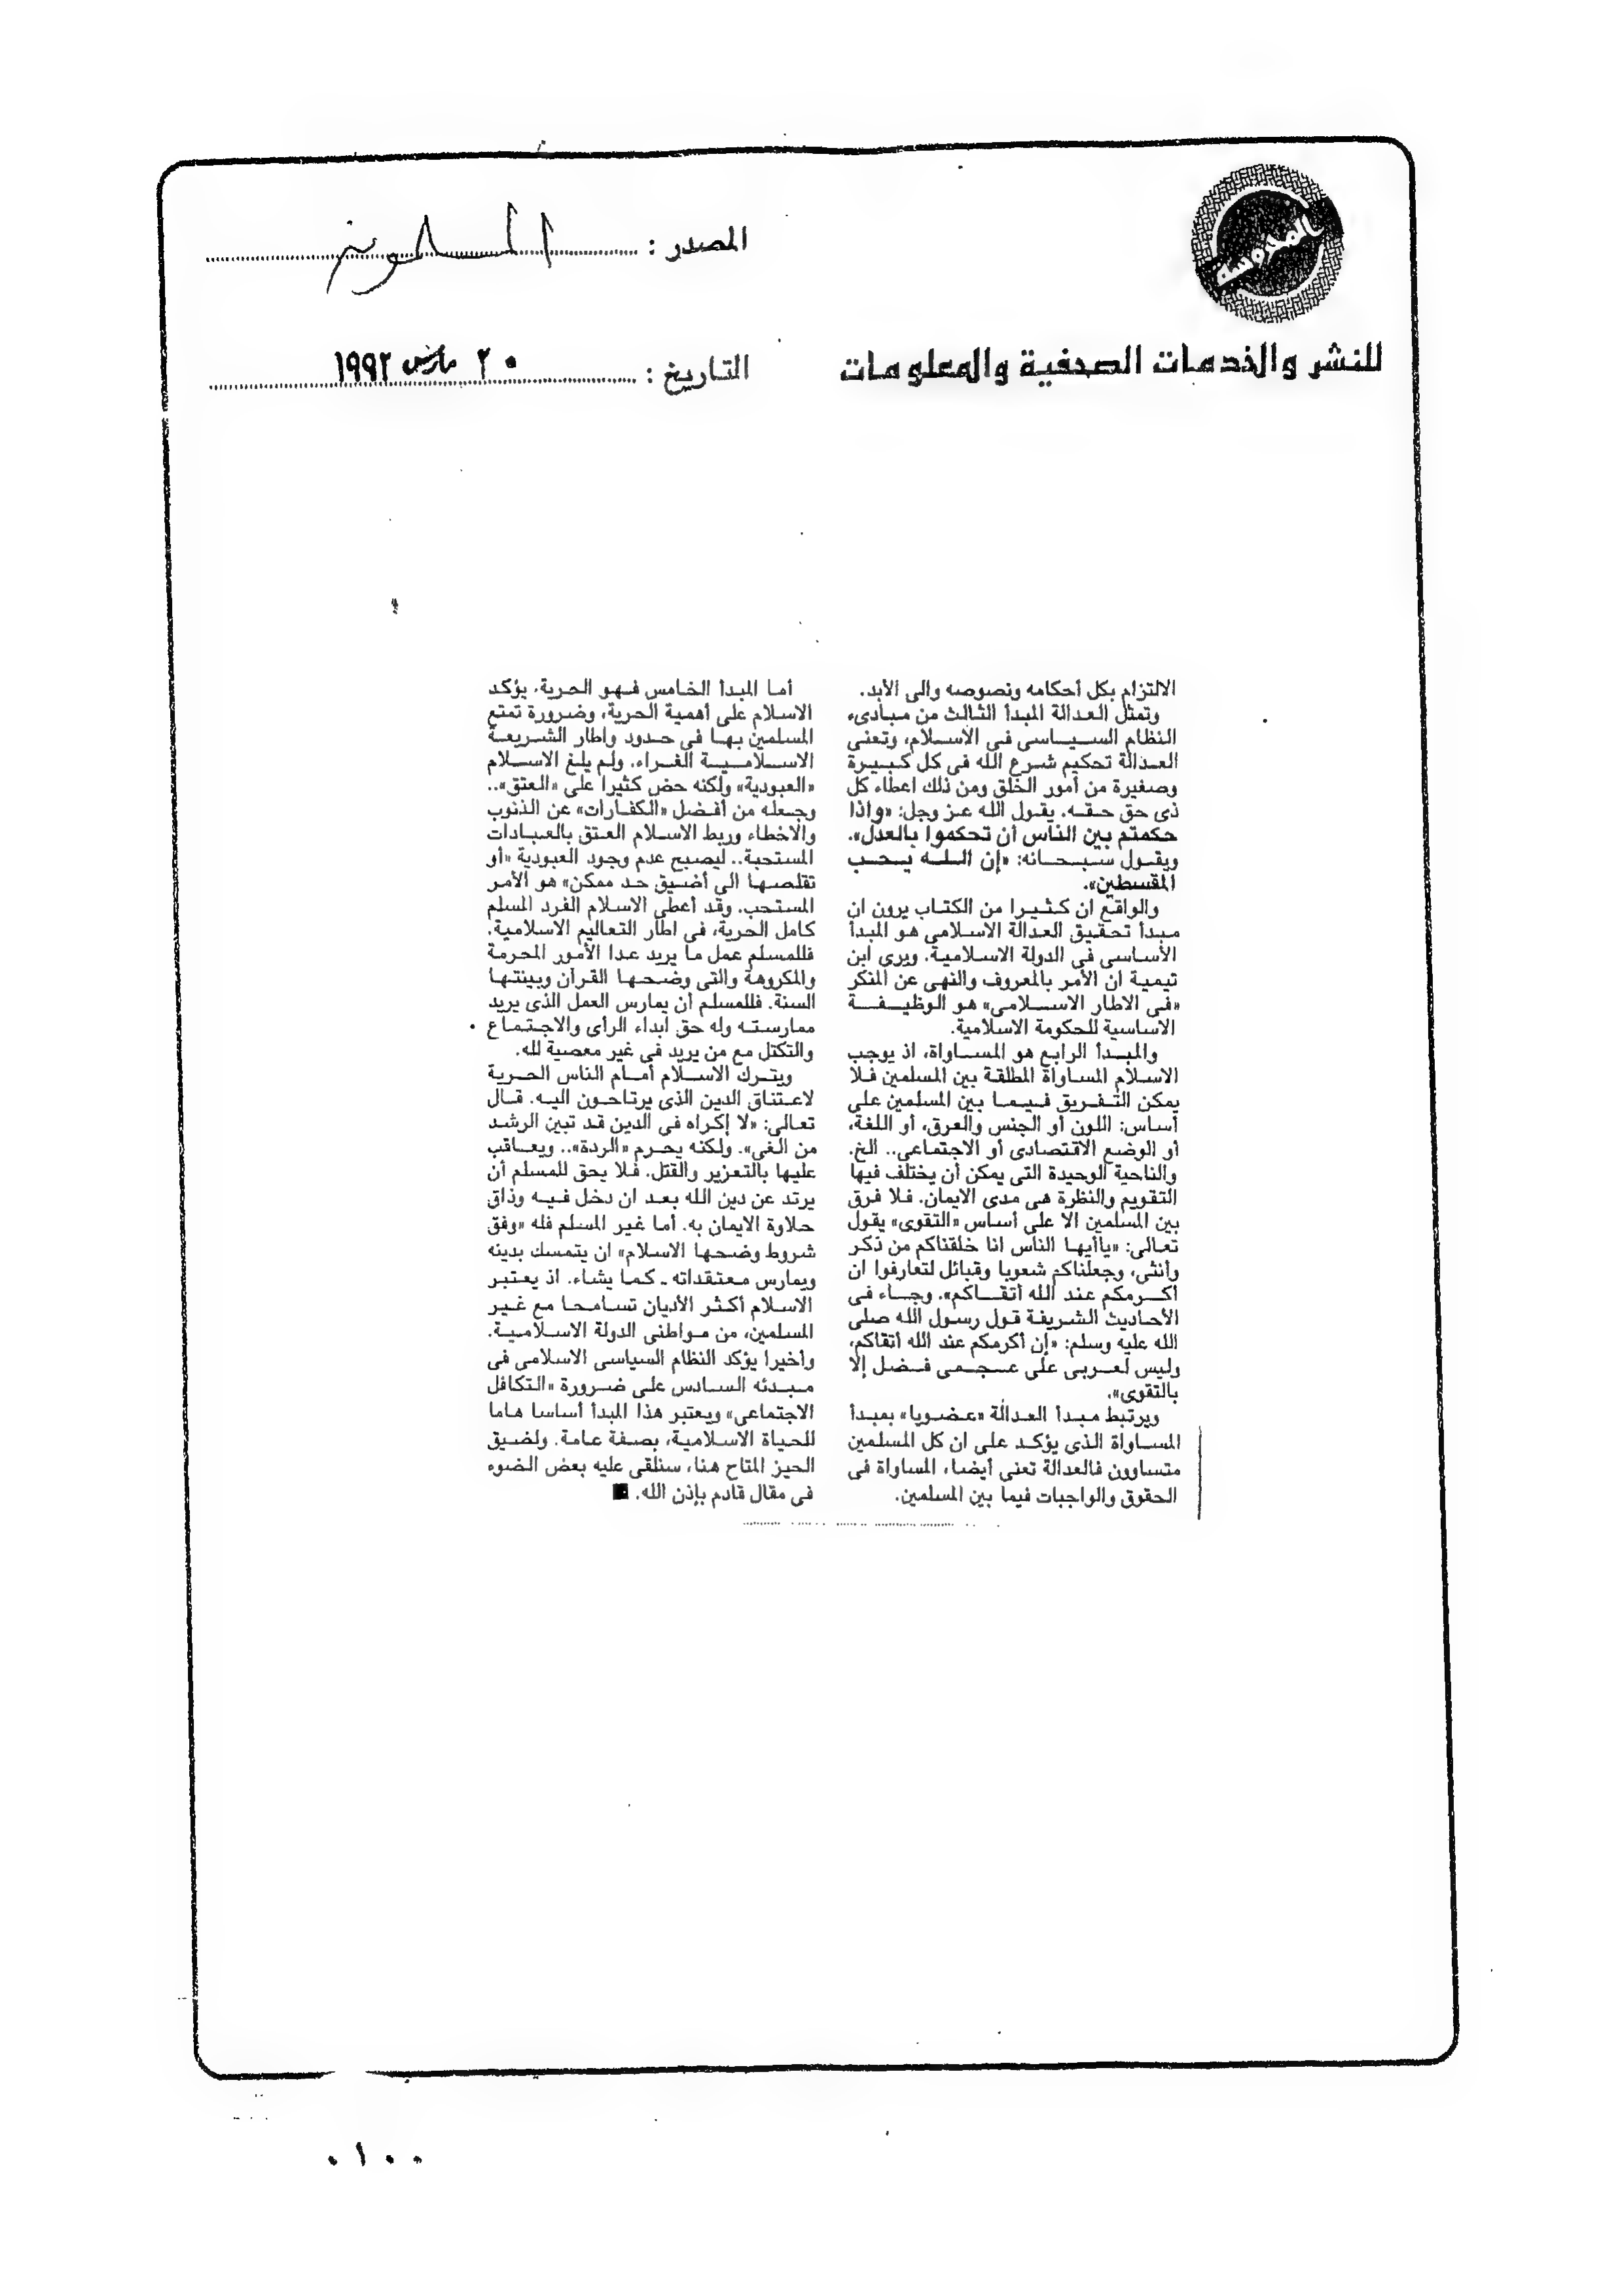 المحروسة
للنشر والخدمات الصحفية والمعلومات
المصدر : المسلمون
التاريخ : ٢٠ مارس ١٩٩٢
الالتزام بكل أحكامه ونصوصه والى الأبد.
وتمثل العدالة المبدأ الثالث من مبادىء
النظام السياسى فى الاسلام، وتعنى
العدالة تحكيم شرع الله فى كل كبيرة
وصغيرة من أمور الخلق ومن ذلك اعطاء كل
ذى حق حقه. يقول الله عز وجل: «وإذا
حكمتم بين الناس أن تحكموا بالعدل».
ويقول سبحانه: «إن الله يحب
المقسطين».
والواقع ان كثيرا من الكتاب يرون ان
مبدأ تحقيق العدالة الاسلامى هو المبدأ
الأساسى فى الدولة الاسلامية. ويرى ابن
تيمية ان الأمر بالمعروف والنهى عن المنكر
«فى الاطار الاسلامى» هو الوظيفة
الاساسية للحكومة الاسلامية.
والمبدأ الرابع هو المساواة، اذ يوجب
الاسلام المساواة المطلقة بين المسلمين فلا
يمكن التفريق فيما بين المسلمين على
أساس: اللون أو الجنس والعرق، أو اللغة،
أو الوضع الاقتصادى أو الاجتماعى.. الخ.
والناحية الوحيدة التى يمكن أن يختلف فيها
التقويم والنظرة هى مدى الايمان. فلا فرق
بين المسلمين الا على أساس «التقوى» يقول
تعالى: «ياأيها الناس انا خلقناكم من ذكر
وأنثى، وجعلناكم شعوبا وقبائل لتعارفوا ان
أكرمكم عند الله أتقاكم». وجاء فى
الأحاديث الشريفة قول رسول الله صلى
الله عليه وسلم: «إن أكرمكم عند الله أتقاكم،
وليس لعربى على عجمى فضل إلا
بالتقوى».
ويرتبط مبدأ العدالة «عضويا» بمبدأ
المساواة الذى يؤكد على ان كل المسلمين
متساوون فالعدالة تعنى أيضا، المساواة فى
الحقوق والواجبات فيما بين المسلمين.
أما المبدأ الخامس فهو الحرية. يؤكد
الاسلام على أهمية الحرية، وضرورة تمتع
المسلمين بها فى حدود واطار الشريعة
الاسلامية الغراء. ولم يلغ الاسلام
«العبودية» ولكنه حض كثيرا على «العتق»..
وجعله من أفضل «الكفارات» عن الذنوب
والاخطاء وربط الاسلام العتق بالعبادات
المستحبة.. ليصبح عدم وجود العبودية «أو
تقلصها الى أضيق حد ممكن» هو الأمر
المستحب. وقد أعطى الاسلام الفرد المسلم
كامل الحرية، فى اطار التعاليم الاسلامية.
فللمسلم عمل ما يريد عدا الأمور المحرمة
والمكروهة والتى وضحها القرآن وبينتها
السنة. فللمسلم أن يمارس العمل الذى يريد
ممارسته وله حق ابداء الرأى والاجتماع
والتكتل مع من يريد فى غير معصية لله.
ويترك الاسلام أمام الناس الحرية
لاعتناق الدين الذى يرتاحون اليه. قال
تعالى: «لا إكراه فى الدين قد تبين الرشد
من الغى». ولكنه يحرم «الردة».. ويعاقب
عليها بالتعزير والقتل. فلا يحق للمسلم أن
يرتد عن دين الله بعد ان دخل فيه وذاق
حلاوة الايمان به. أما غير المسلم فله «وفق
شروط وضحها الاسلام» ان يتمسك بدينه
ويمارس معتقداته ـ كما يشاء. اذ يعتبر
الاسلام أكثر الأديان تسامحا مع غير
المسلمين، من مواطنى الدولة الاسلامية.
وأخيرا يؤكد النظام السياسى الاسلامى فى
مبدئه السادس على ضرورة «التكافل
الاجتماعى» ويعتبر هذا المبدأ أساسا هاما
للحياة الاسلامية، بصفة عامة. ولضيق
الحيز المتاح هنا، سنلقى عليه بعض الضوء
فى مقال قادم بإذن الله.
٠١٠٠